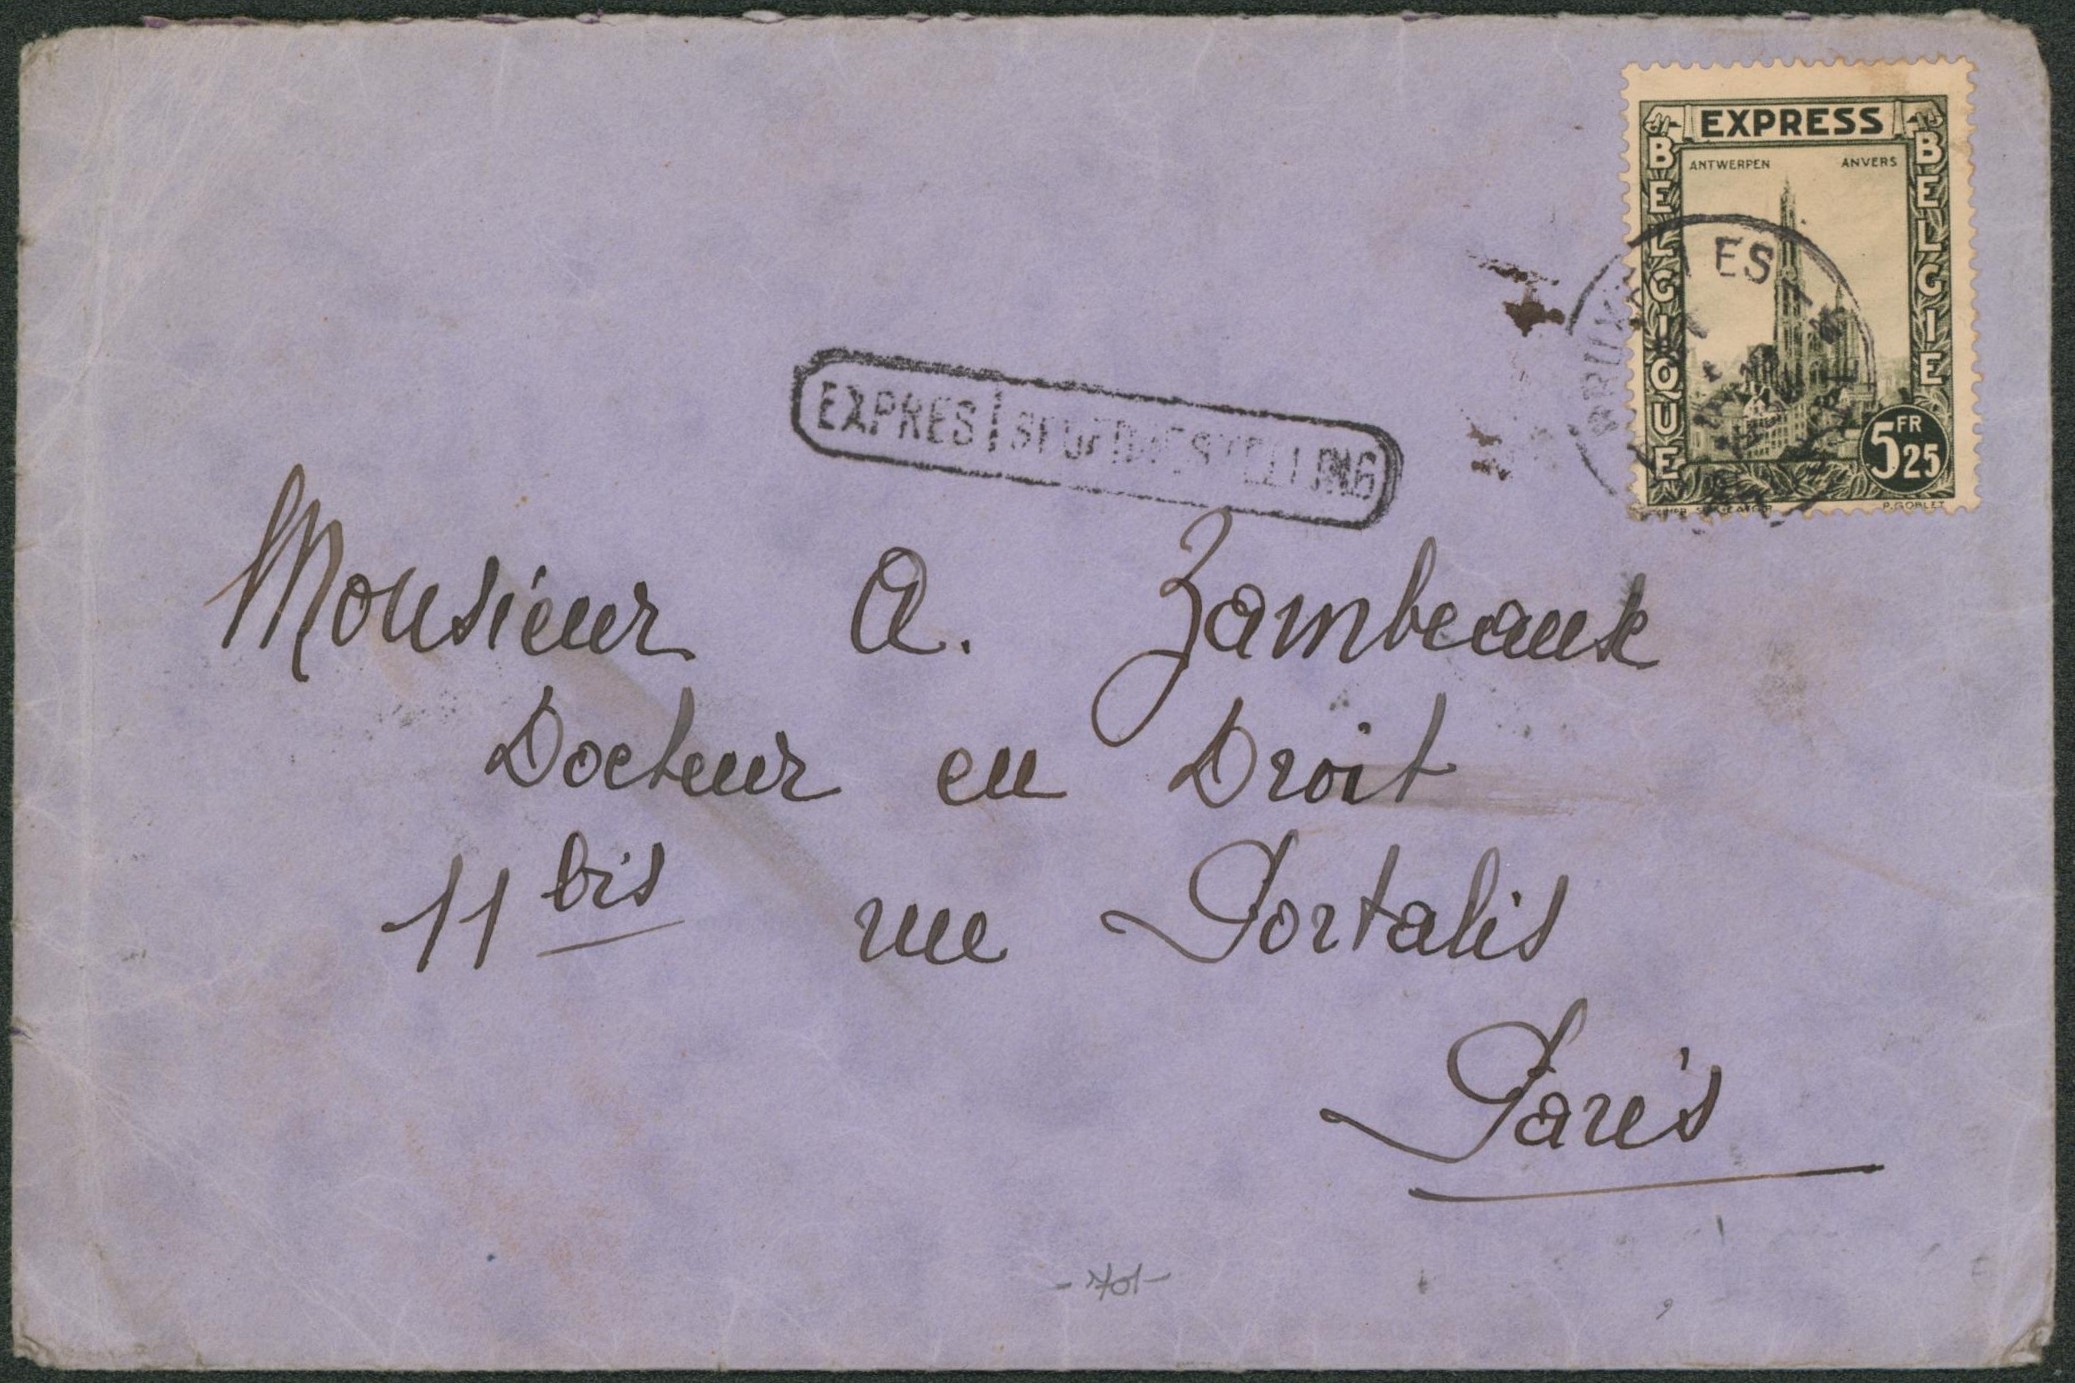 EXPRESS
ANTWERPEN ANVERS
BELGIQUE
BELGIE
5FR25
P. GORLET
BRUXELLES
EXPRES | SPOEDBESTELLING
Monsieur A. Zambeaux
Docteur en Droit
11 bis rue Portalis
Paris